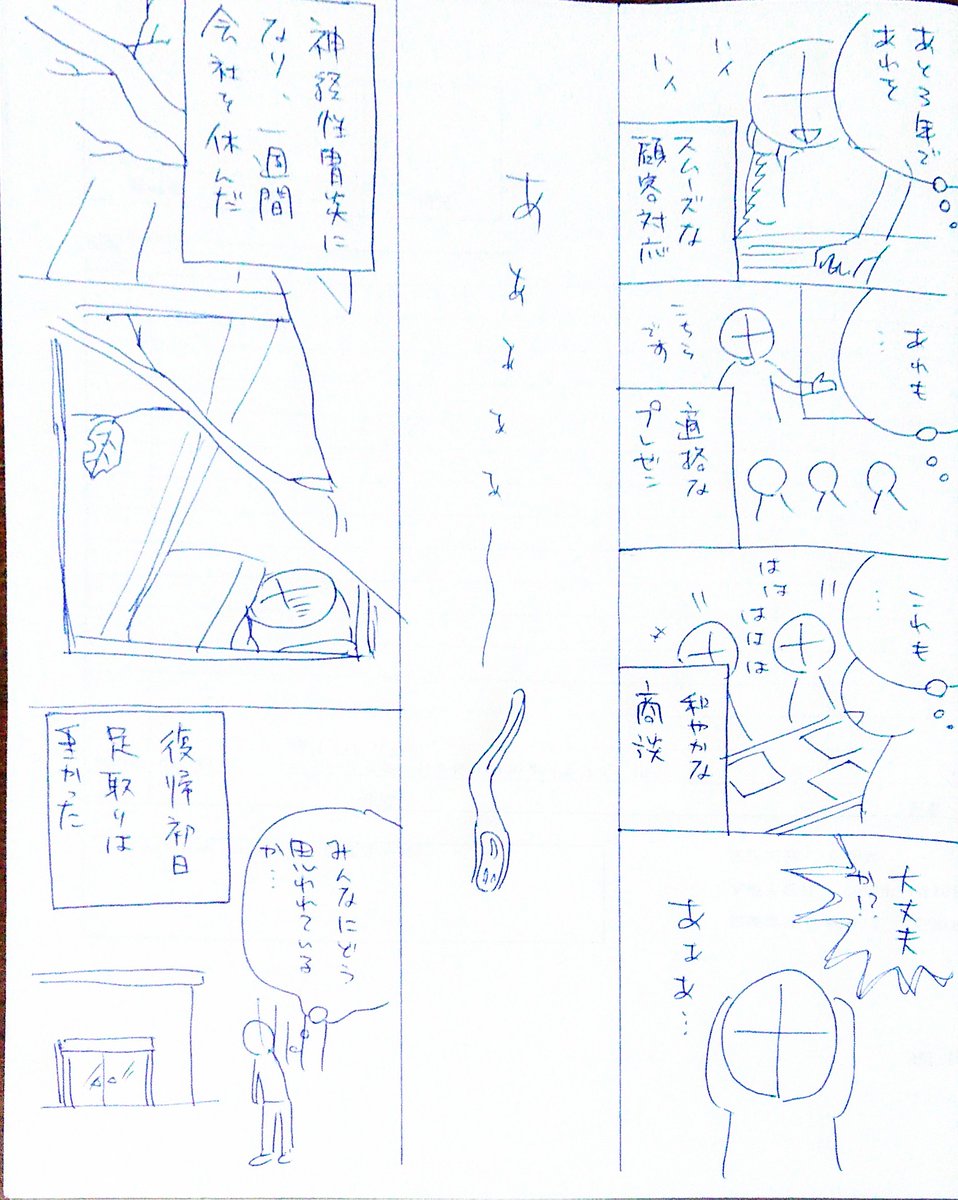 あと3年で
あれを
ハイ
ハイ
スムーズな
顧客対応
あれも
…
こちら
です
適格な
プレゼン
これも
…
はは
ははは
和やかな
商談
大丈夫
か!?
あああ…
あああああ
神経性胃炎に
なり、一週間
会社を休んだ
復帰初日
足取りは
重かった
みんなにどう
思われている
か…